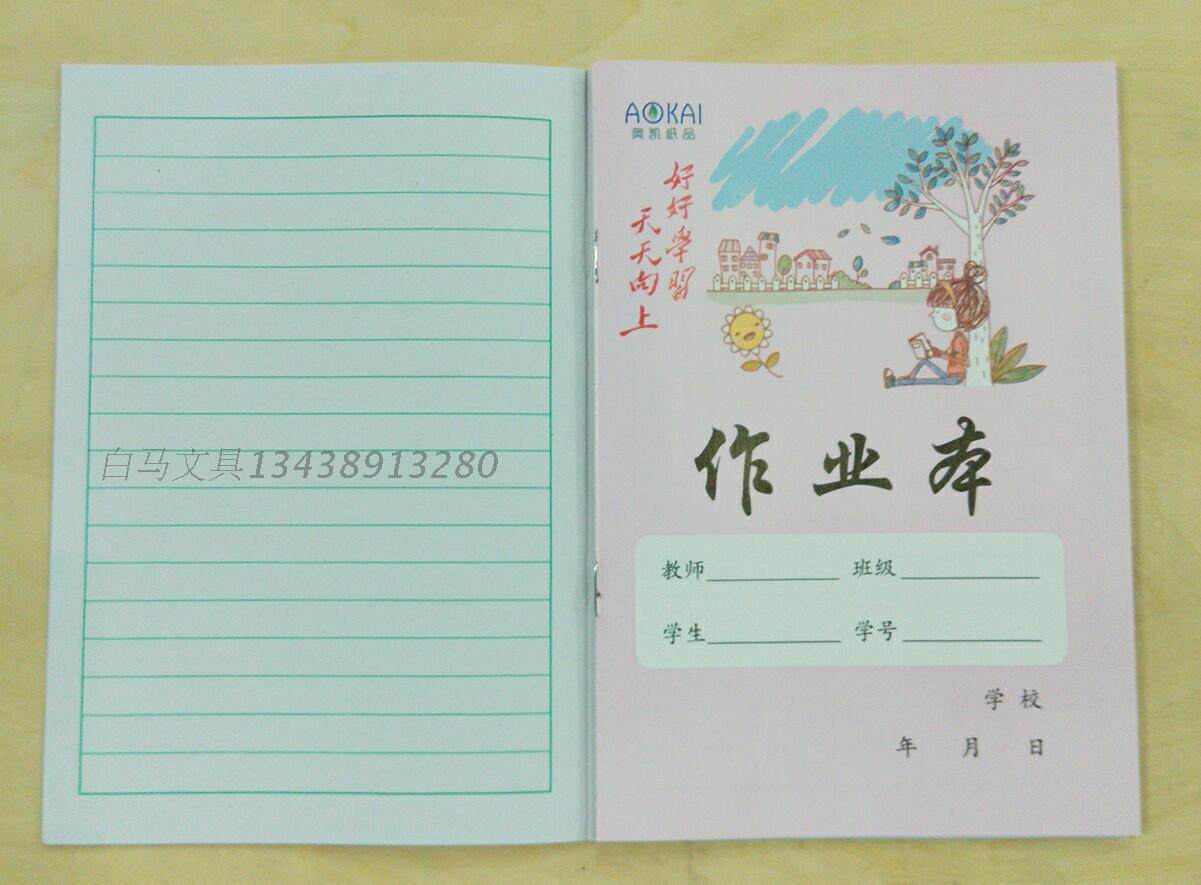 白马文具13438913280
AOKAI
奥凯纸品
好好學習
天天向上
作业本
教师 班级
学生 学号
学校
年 月 日